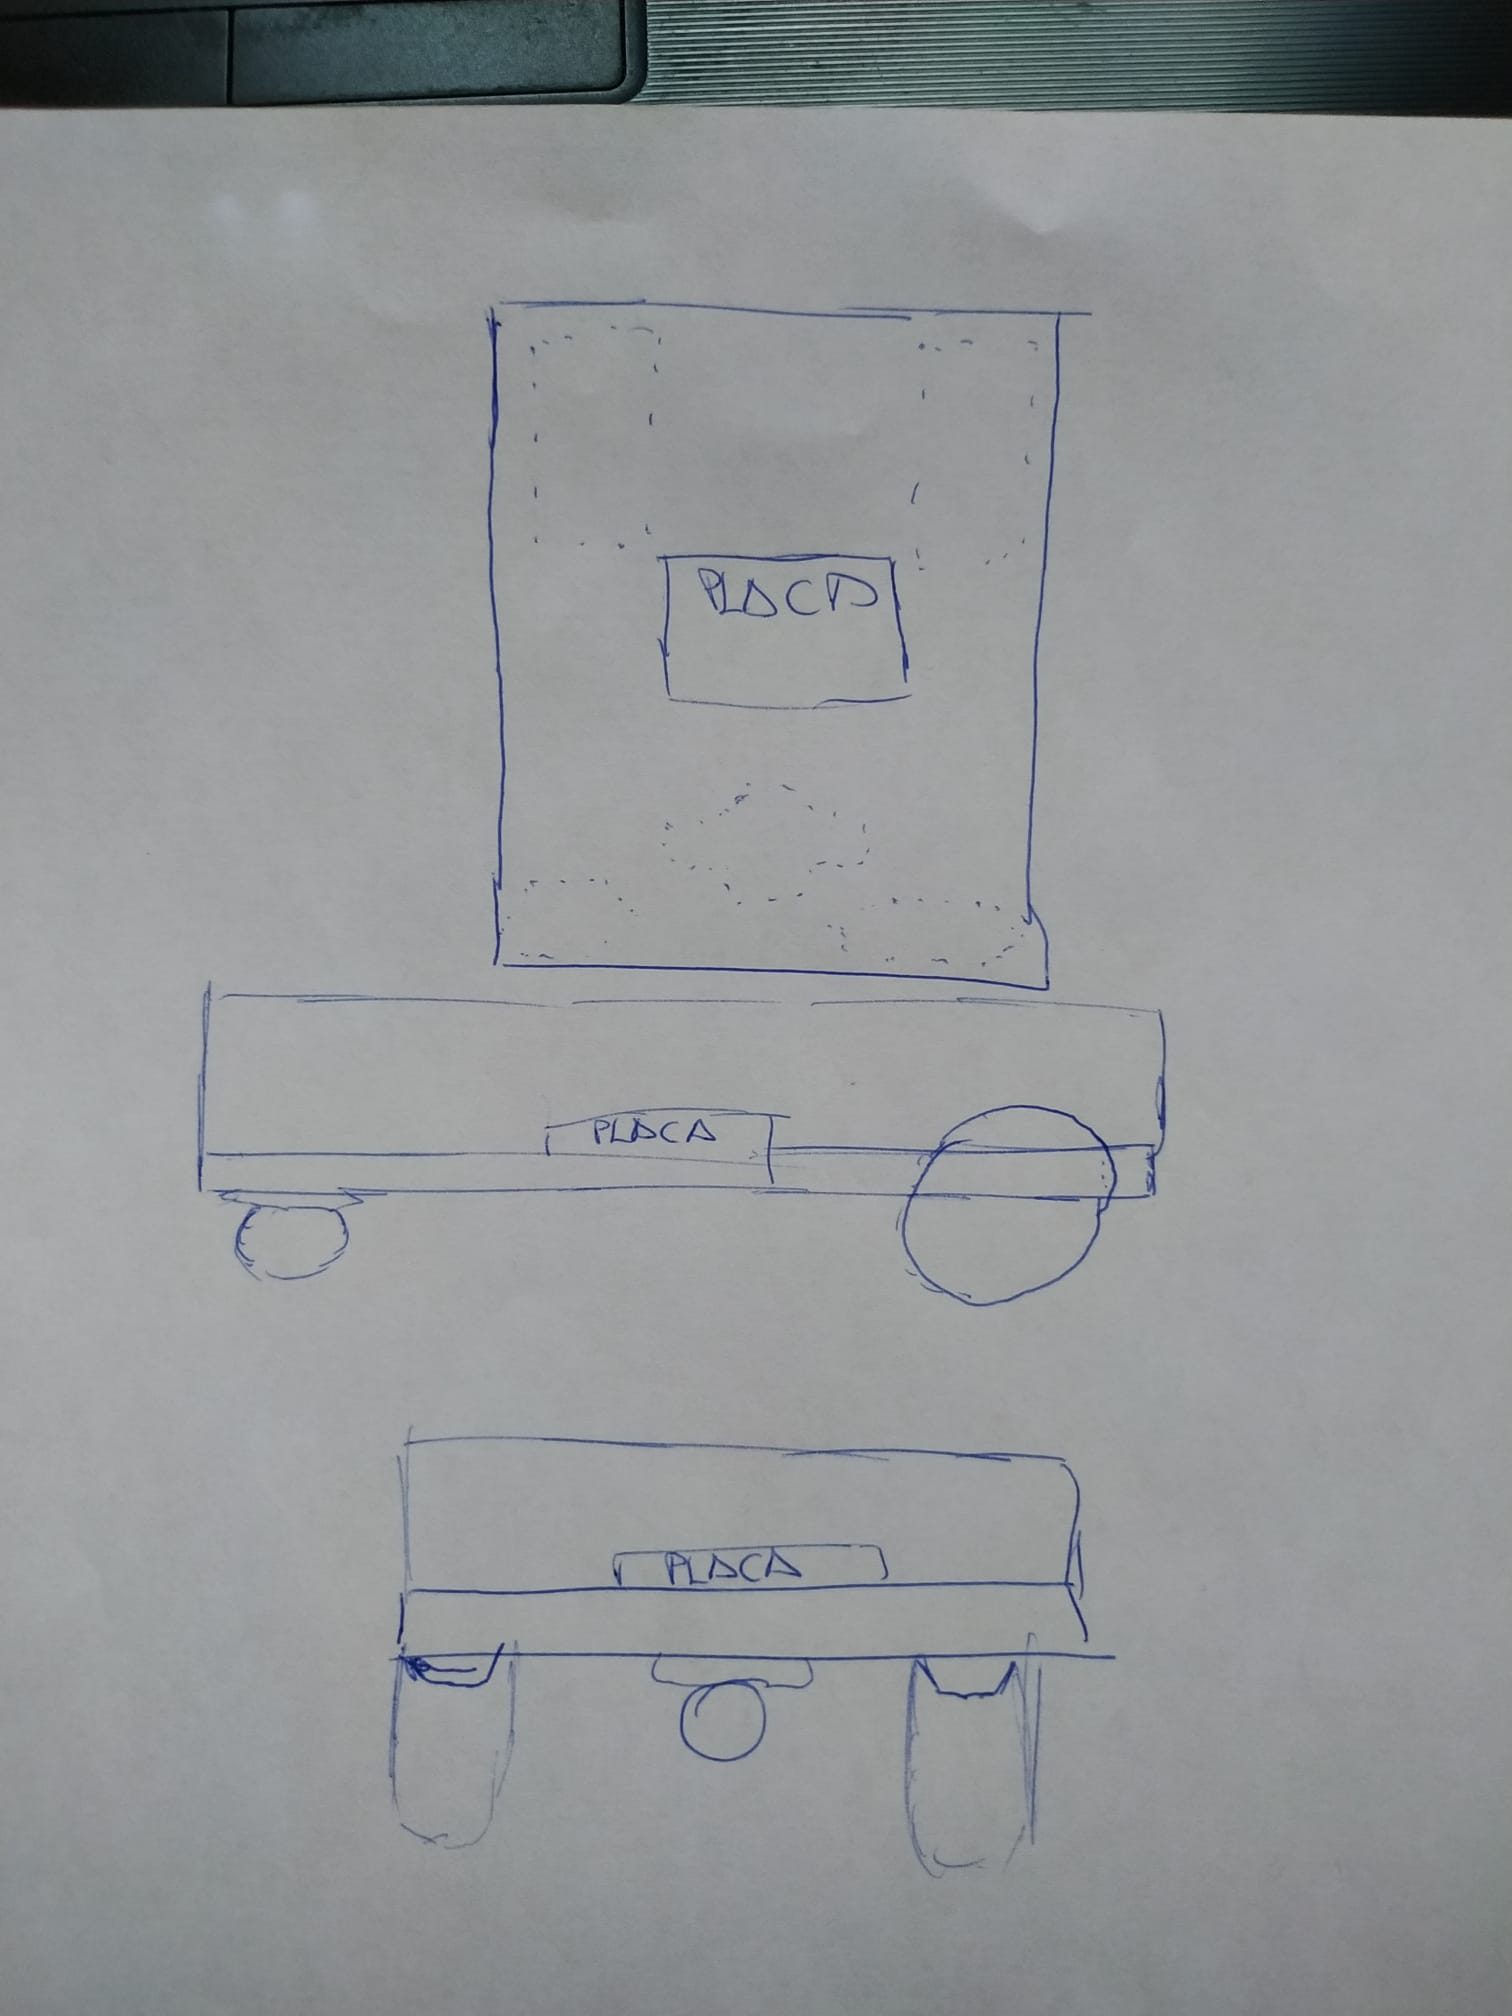 PLACA
PLACA
PLACA